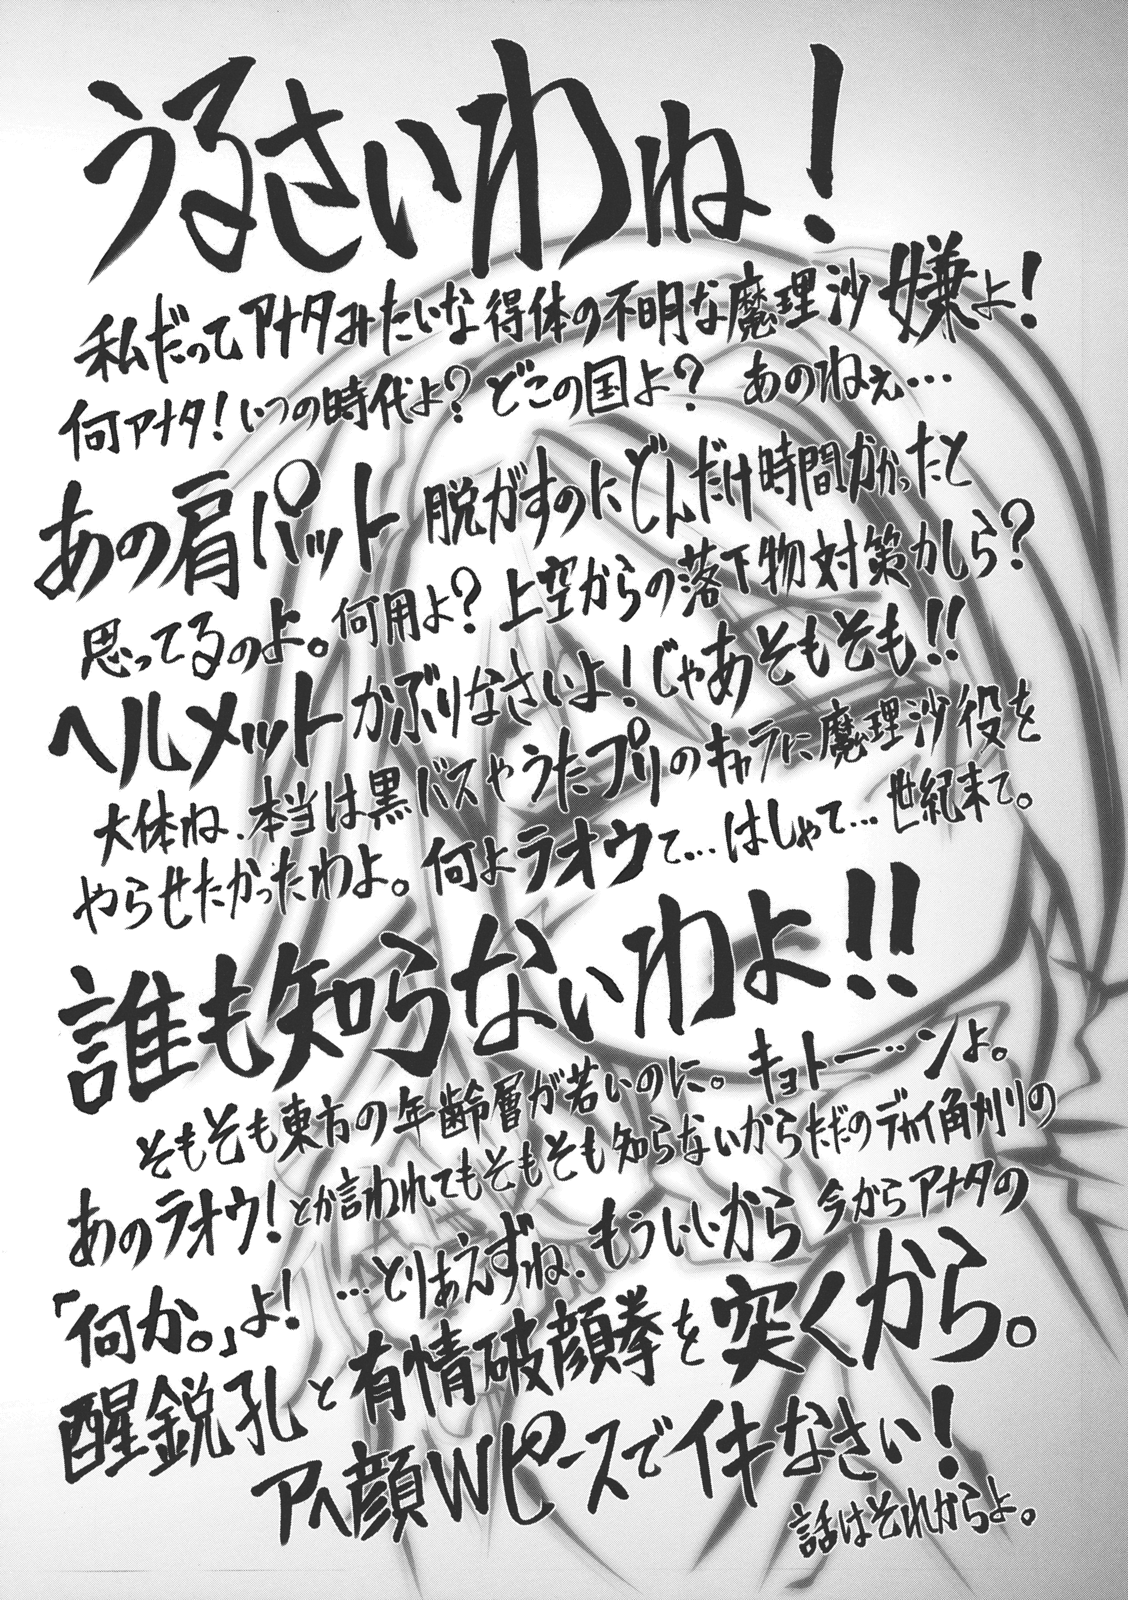 うるさいわね！
私だってアナタみたいな得体の不明な魔理沙嫌よ！
何アナタ！いつの時代よ？どこの国よ？ あのねぇ…
あの肩パット脱がすのにどんだけ時間かかったと
思ってるのよ。何用よ？上空からの落下物対策かしら？
ヘルメットかぶりなさいよ！じゃあそもそも!!
大体ね、本当は黒バスやうたプリのキャラに魔理沙役を
やらせたかったわよ。何よラオウて…はしゃて…世紀末て。
誰も知らないわよ!!
そもそも東方の年齢層が若いのに。キョトーンよ。
あのラオウ！とか言われてもそもそも知らないからただのデカイ角刈りの
「何か。」よ！…とりあえずね、もういいから今からアナタの
醒鋭孔と有情破顔拳を突くから。
アヘ顔Wピースでイキなさい！
話はそれからよ。